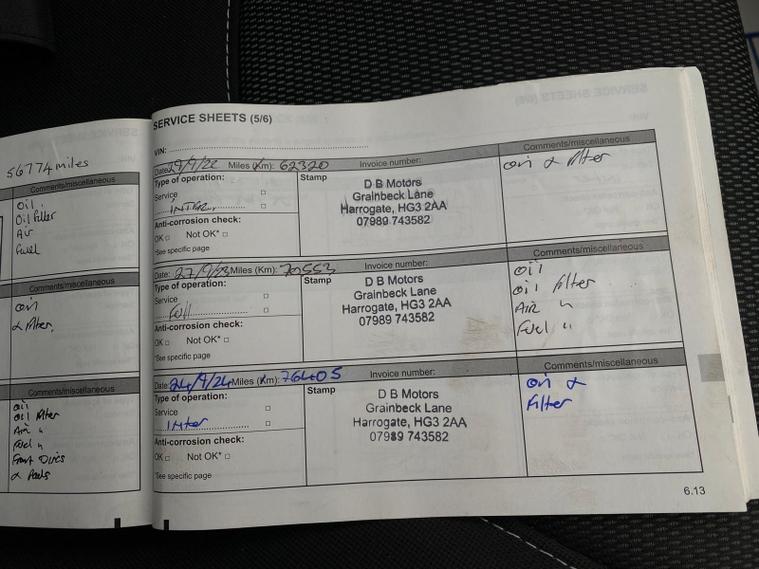 56774 miles
Comments/miscellaneous
Oil
Oil filter
Air
Fuel
Comments/miscellaneous
Oil
& filter
Comments/miscellaneous
Oil
Oil filter
Air "
Fuel "
Front Discs
& Pads
SERVICE SHEETS (5/6)
VIN:
Date: 29/9/22 Miles (Km): 62320 Invoice number: Comments/miscellaneous
Type of operation: Stamp oil & filter
Service
INTER
Anti-corrosion check:
OK Not OK*
*See specific page
D B Motors
Grainbeck Lane
Harrogate, HG3 2AA
07989 743582
Date: 27/9/23 Miles (Km): 70553 Invoice number: Comments/miscellaneous
Type of operation: Stamp
Service
Full
Anti-corrosion check:
OK Not OK*
*See specific page
D B Motors
Grainbeck Lane
Harrogate, HG3 2AA
07989 743582
Oil
oil filter
Air "
Fuel "
Date: 24/9/24 Miles (Km): 76405 Invoice number: Comments/miscellaneous
Type of operation: Stamp
Service
Inter
Anti-corrosion check:
OK Not OK*
*See specific page
D B Motors
Grainbeck Lane
Harrogate, HG3 2AA
07989 743582
oil &
Filter
6.13